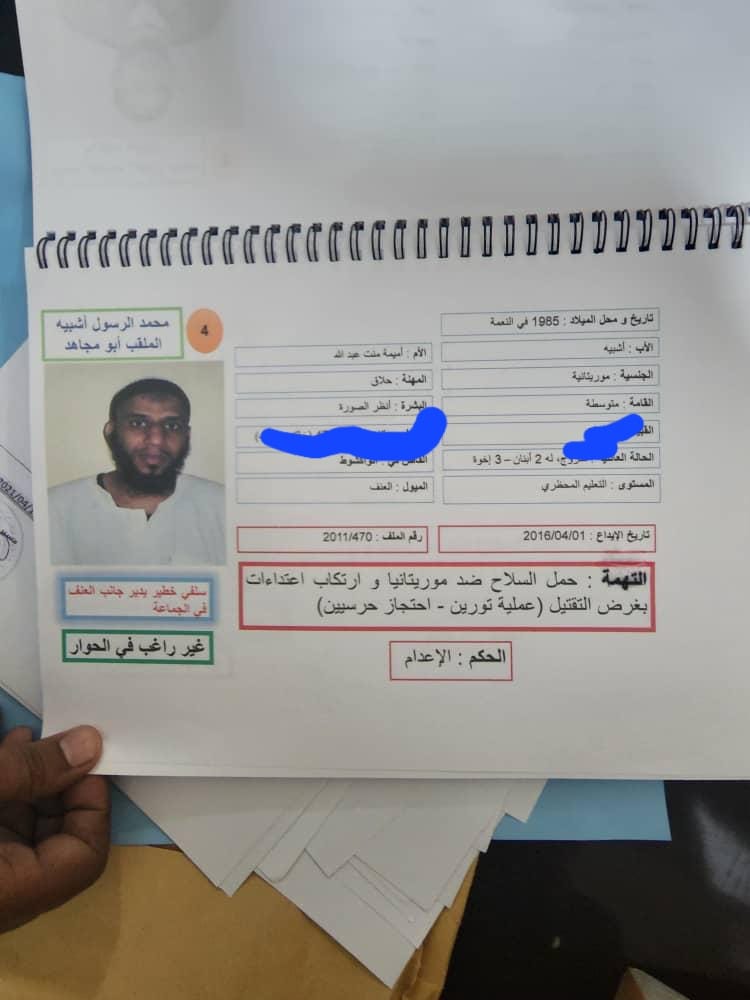 4
محمد الرسول أشبيه
الملقب أبو مجاهد
تاريخ و محل الميلاد : 1985 في النعمة
الأب : أشبيه
الأم : أميمة منت عبد الله
الجنسية : موريتانية
المهنة : حلاق
القامة : متوسطة
البشرة : أنظر الصورة
الحالة
له 2 أبنان – 3 إخوة
المستوى : التعليم المحظري
الميول : العنف
تاريخ الإيداع : 2016/04/01
رقم الملف : 2011/470
التهمة : حمل السلاح ضد موريتانيا و ارتكاب اعتداءات
بغرض التقتيل (عملية تورين - احتجاز حرسيين)
سلفي خطير يدير جانب العنف
في الجماعة
غير راغب في الحوار
الحكم : الإعدام